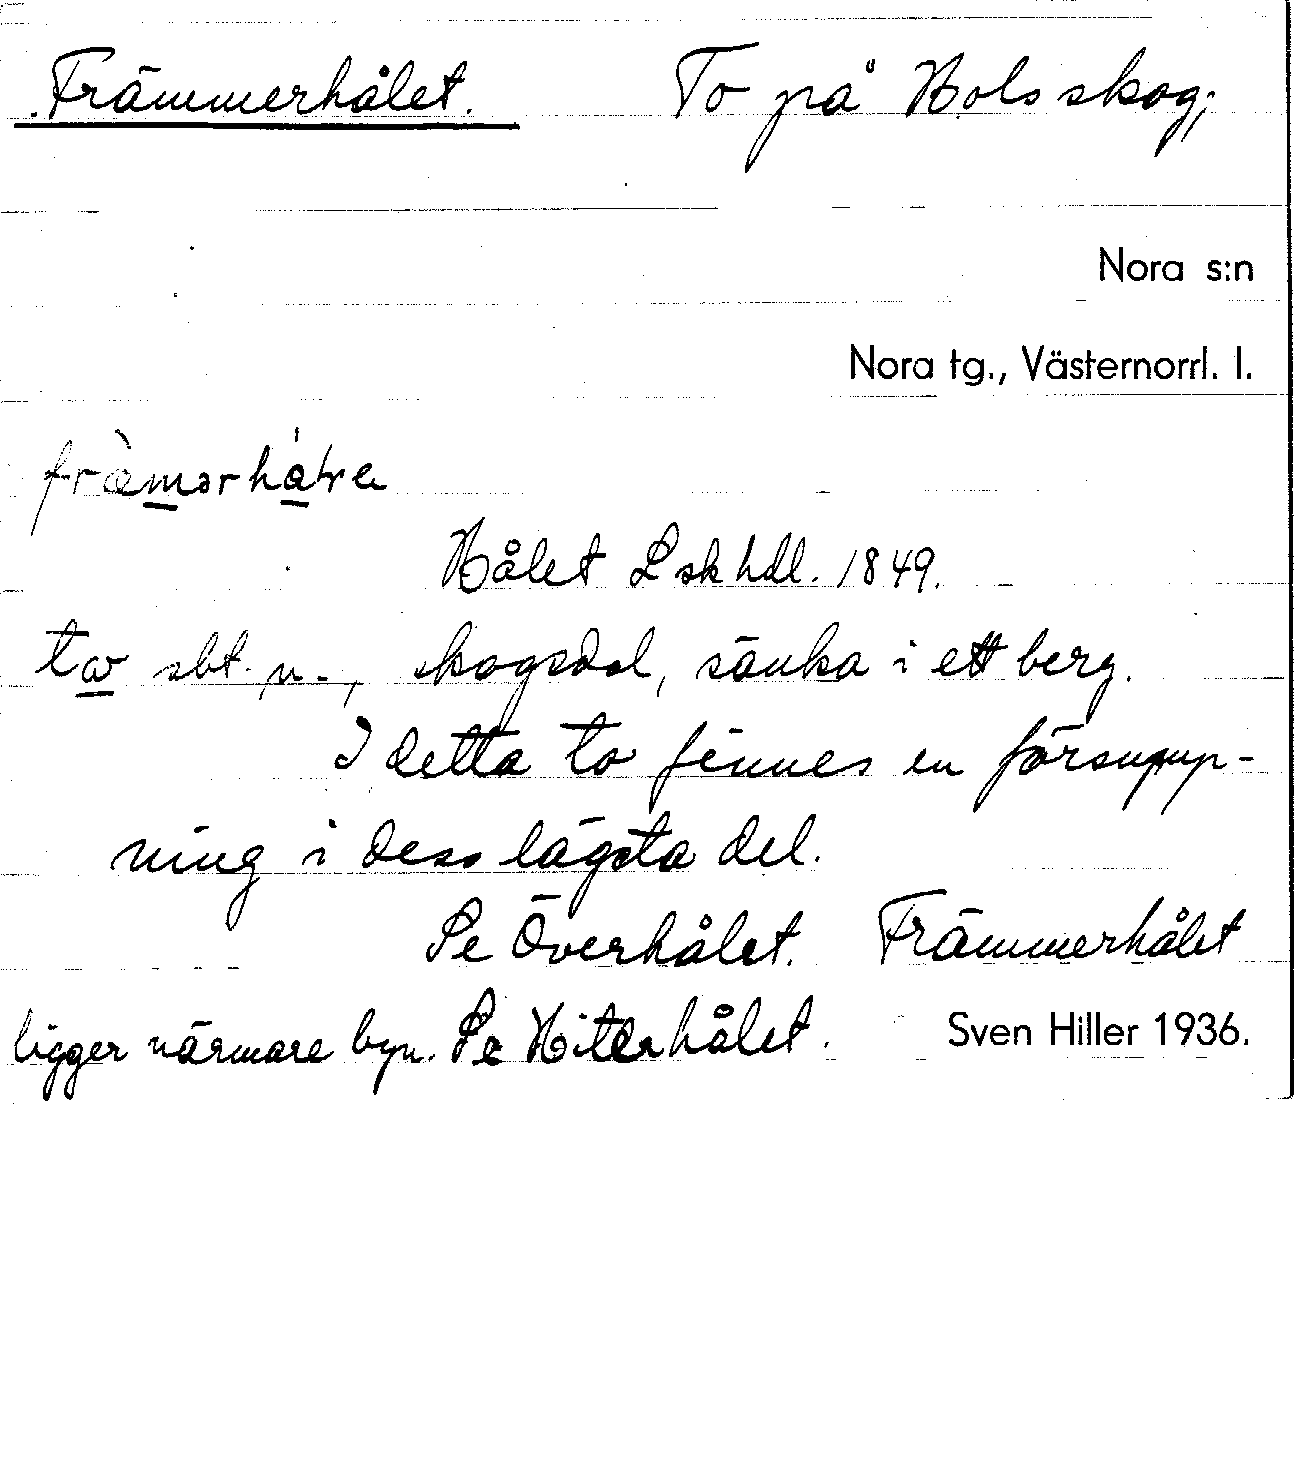 Främmerhålet. To på Hols skog;
Nora s:n
Nora tg., Västernorrl. l.
Hålet L sk hdl. 1849.
sbt. n., skogsdal, sänka i ett berg.
I detta to finnes en försump-
ning i dess lägsta del.
Se Överhålet. Främmerhålet
ligger närmare byn. Se Hiterhålet.
Sven Hiller 1936.